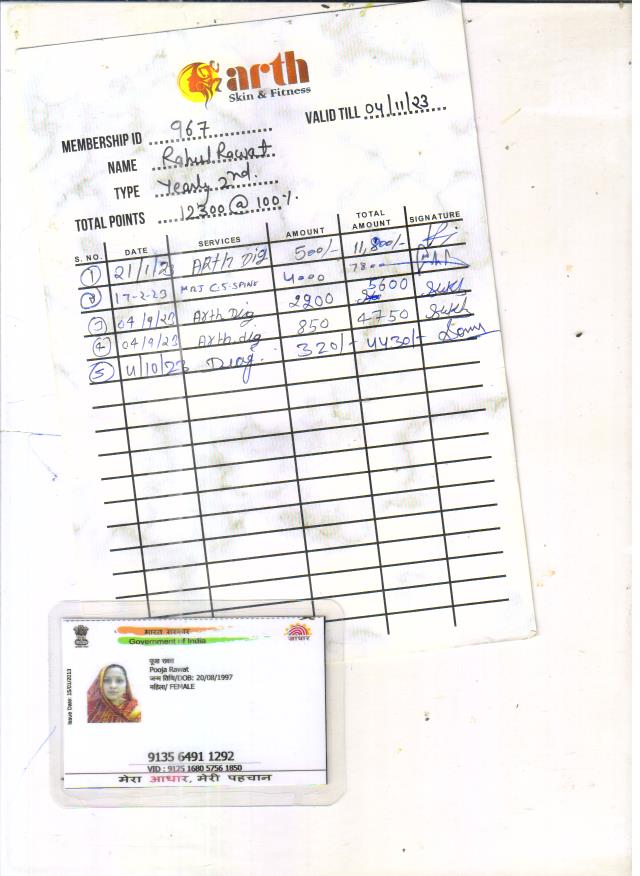 arth
Skin & Fitness
VALID TILL 04/11/23
MEMBERSHIP ID 967
NAME Rahul Rawat
TYPE Yearly 2nd.
TOTAL POINTS 12300 @ 100%.
S. NO. DATE SERVICES AMOUNT TOTAL AMOUNT SIGNATURE
1 21/1/23 Arth Dig 500/- 11,800/-
2 17-2-23 4000 7800
3 04/9/23 Arth Dig 2200 5600
4 04/9/23 Arth dig 850 4750
5 4/10/23 320/- 4430/-
भारत सरकार
Government of India
आधार
Issue Date: 15/01/2013
Pooja Rawat
जन्म तिथि/DOB: 20/08/1997
महिला/ FEMALE
9135 6491 1292
VID : 9125 1680 5756 1850
मेरा आधार, मेरी पहचान